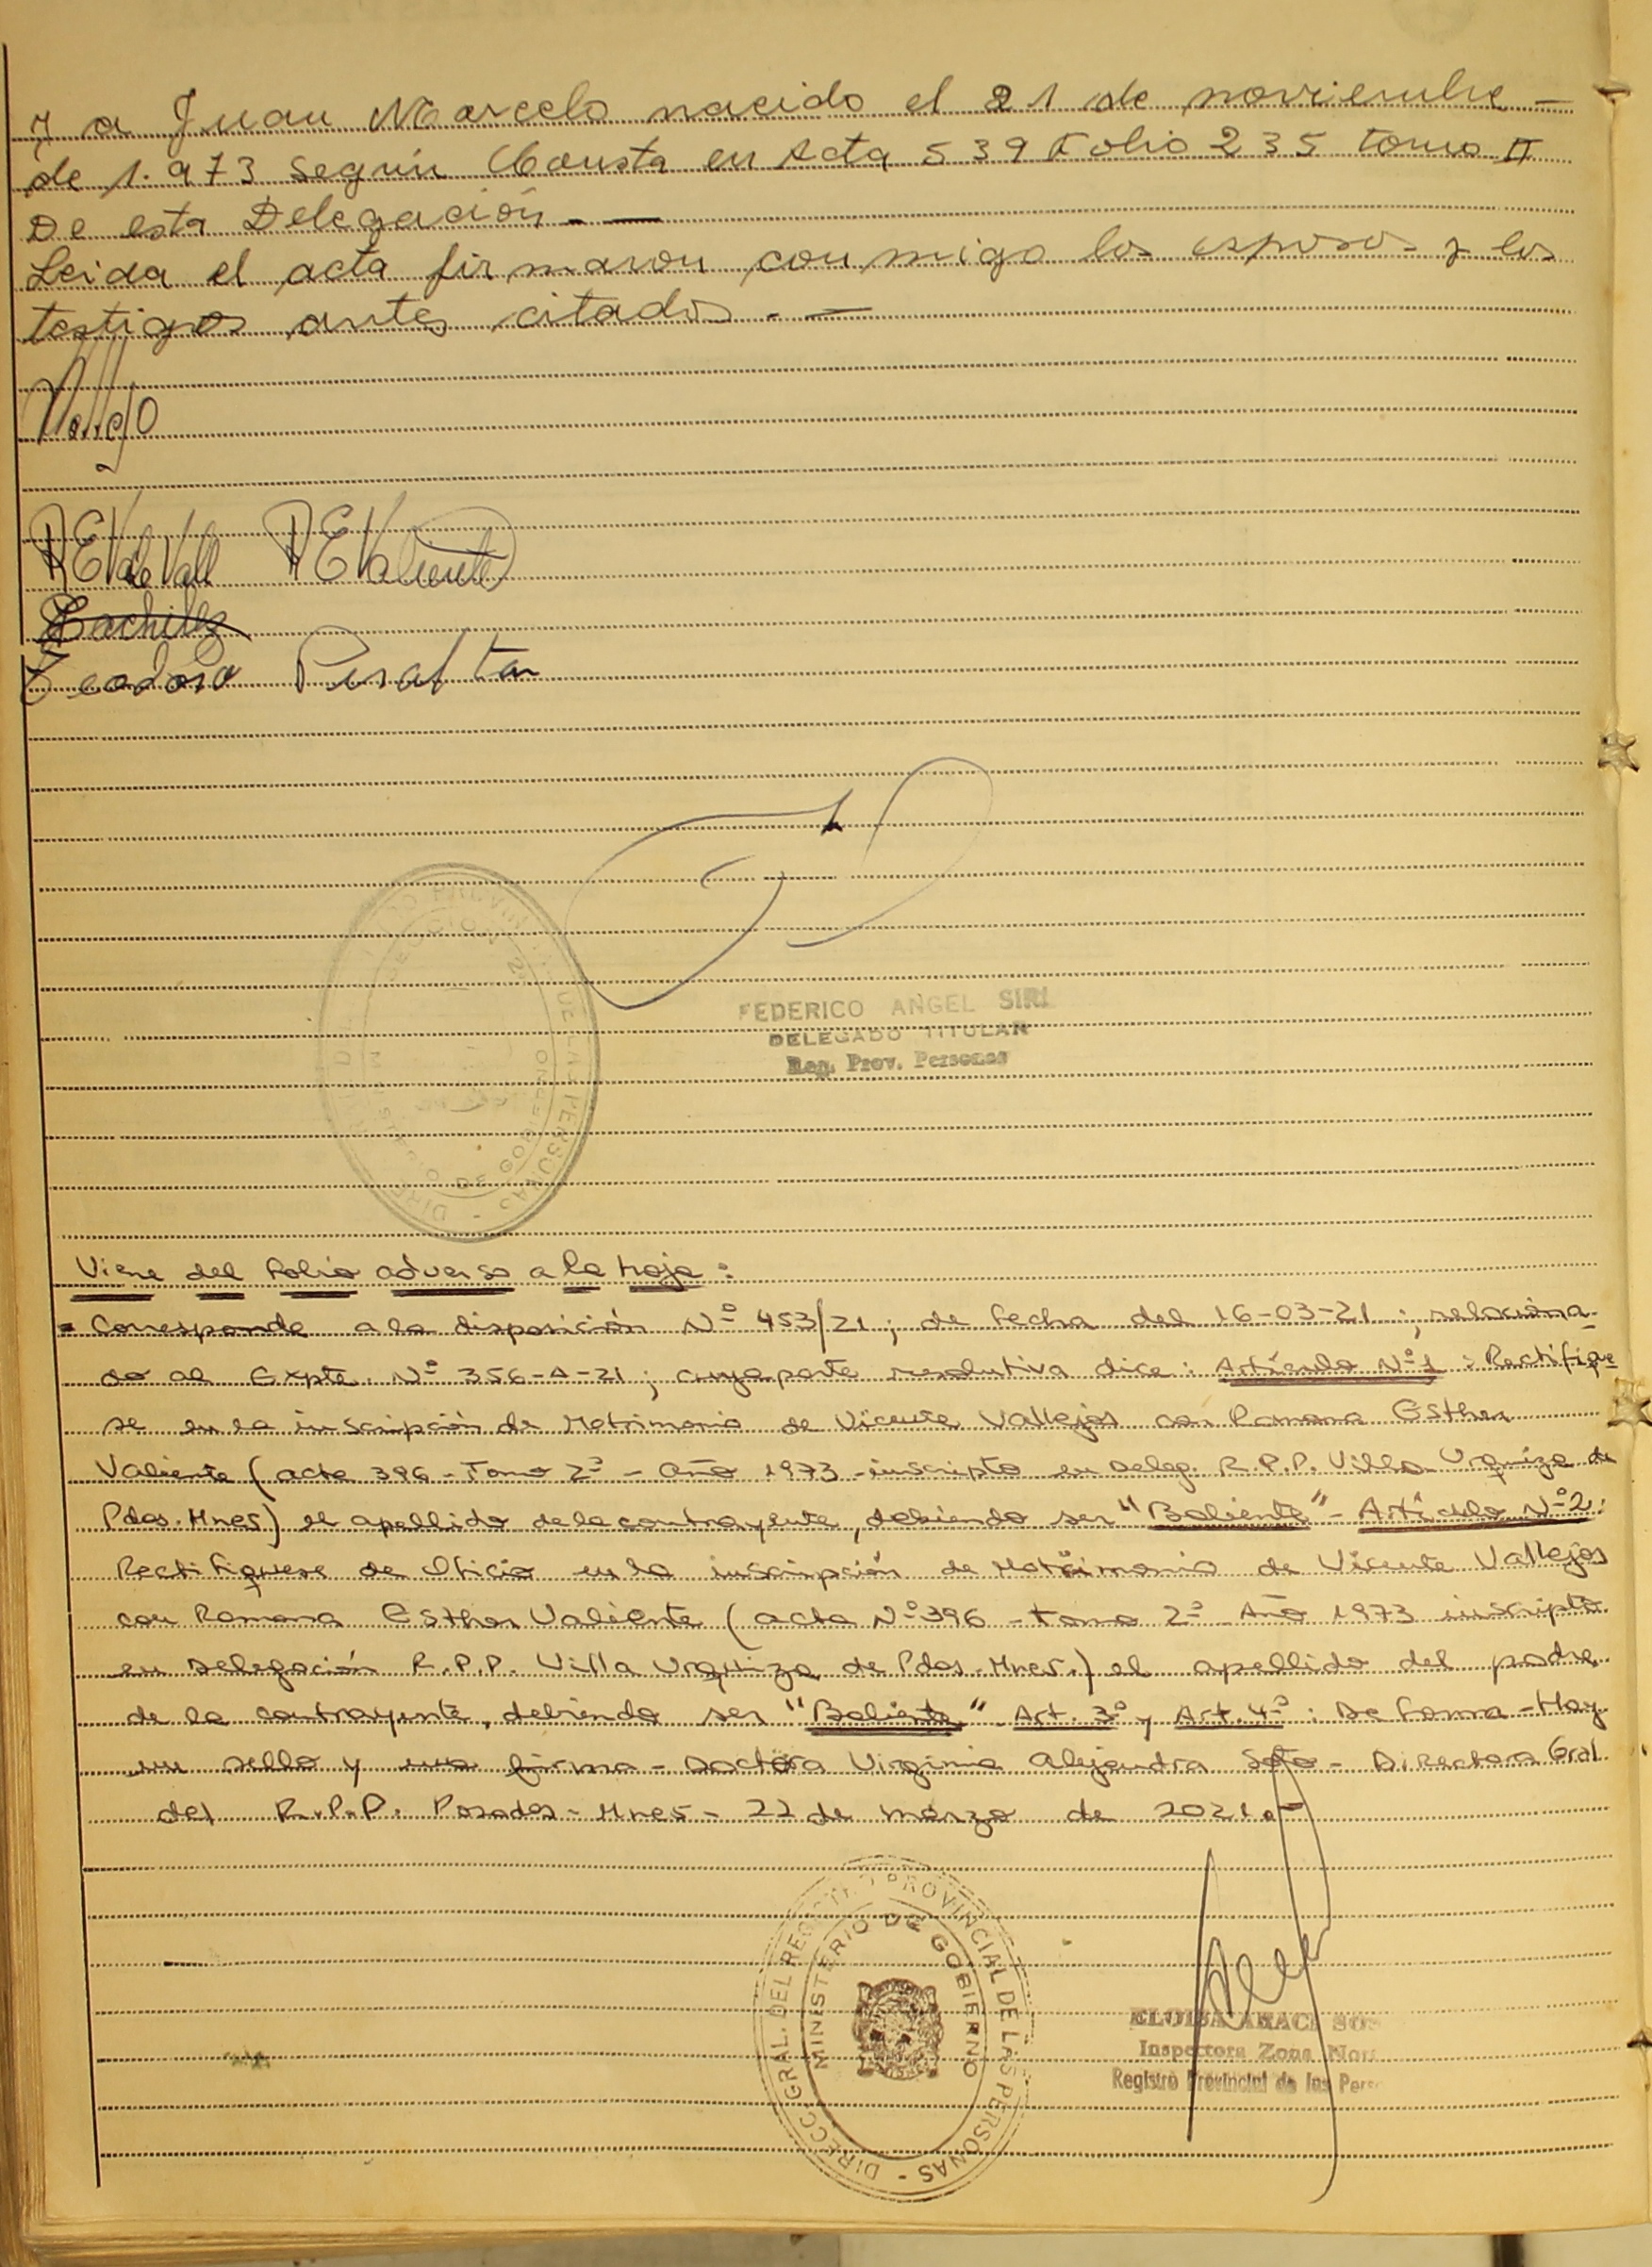 y a Juan Marcelo nacido el 21 de noviembre —
de 1.973 según Consta en Acta 539 Folio 235 tomo II
De esta Delegación. —
Leida el acta firmaron conmigo los esposos y los
testigos antes citados. —
Vallejo
REV de Vall REValiente
Teodoro Peralta
FEDERICO ANGEL SIRI
DELEGADO TITULAR
Reg. Prov. Personas
Viene del Folio adverso a la hoja:
Corresponde a la disposición Nº 453/21; de fecha del 16-03-21; relaciona-
do al Expte. Nº 356-A-21; cuya parte resolutiva dice: Artículo Nº 1: Rectifique
se en la inscripción de Matrimonio de Vicente Vallejos con Ramona Esther
Valiente (acta 396 - Tomo 2º - año 1973 - inscripto en Deleg. R.P.P. Villa Urquiza de
Pdas. Mnes) el apellido de la contrayente, debiendo ser "Baliente" - Artículo Nº 2:
Rectifiquese de Oficio en la inscripción de Matrimonio de Vicente Vallejos
con Ramona Esther Valiente (acta Nº 396 - Tomo 2º - Año 1973 inscripto
en Delegación R.P.P. Villa Urquiza de Pdas. Mnes.) el apellido del padre
de la contrayente, debiendo ser "Baliente". Art. 3º y Art. 4º: De forma - Hay
un sello y una firma - Doctora Virginia Alejandra Soto - Directora Gral
del R.P.P. Posadas - Mnes - 22 de marzo de 2021.-
DIRECC. GRAL. DEL REGISTRO PROVINCIAL DE LAS PERSONAS -
MINISTERIO DE GOBIERNO
Inspectora Zona
Registro Provincial de las Perso